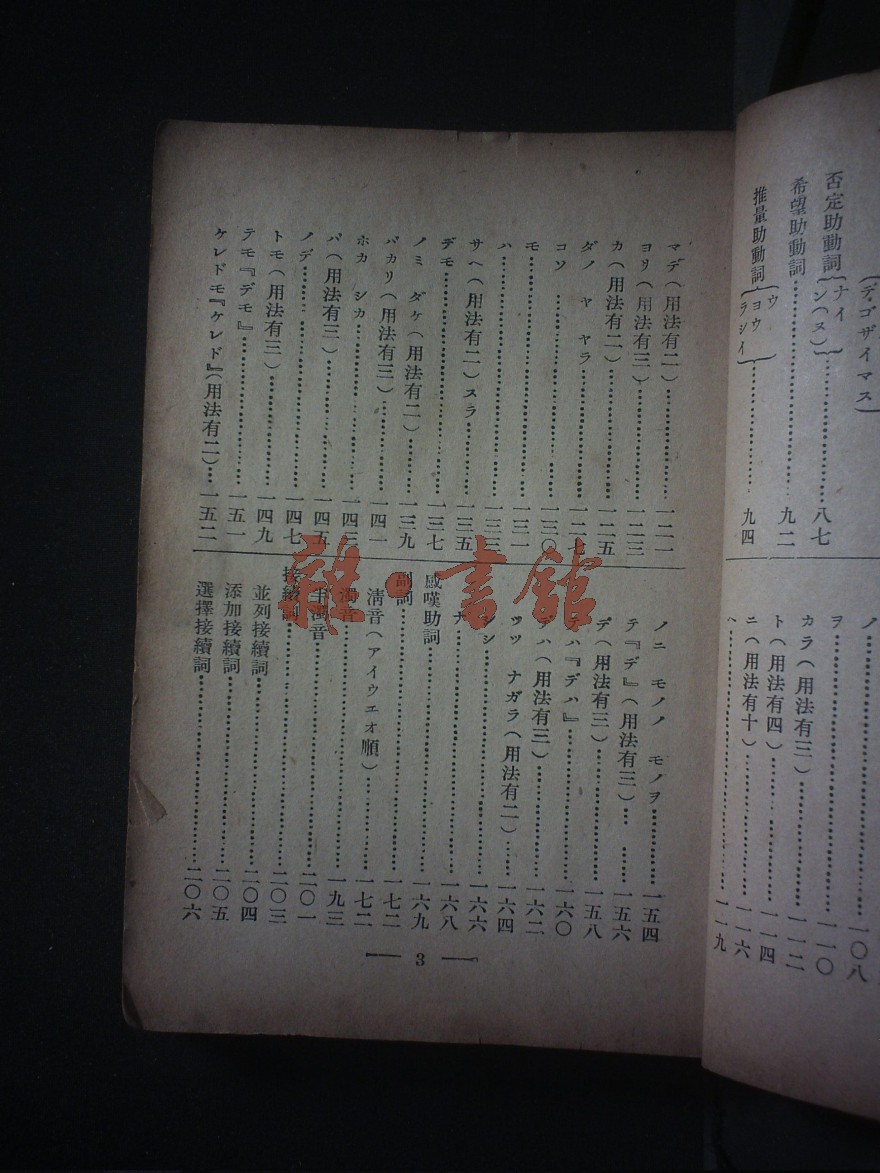 (デ、ゴザイマス)
否定助動詞{ナイ ン(ヌ)}……八七
希望助動詞……九二
推量助動詞{ウ ヨウ ラシイ}……九四
ノ……一〇八
ヲ……一一〇
カラ(用法有三)……一一二
ト(用法有四)……一一四
ニ(用法有十)……一一六
ヘ……一一九
マデ(用法有二)……一二一
ヨリ(用法有三)……一二三
カ(用法有二)……一二五
ダノ ヤ ヤラ……一二七
コソ……一三〇
モ……一三一
ハ……一三三
サヘ(用法有二)スラ……一三五
デモ……一三七
ノミ ダケ(用法有二)……一三九
バカリ(用法有三)……一四一
ホカ シカ……一四三
バ(用法有三)……一四五
ノデ……一四七
トモ(用法有三)……一四九
テモ『デモ』……一五一
ケレドモ『ケレド』(用法有二)……一五二
ノニ モノノ モノヲ……一五四
テ『デ』(用法有三)……一五六
デ(用法有三)……一五八
テハ『デハ』……一六〇
デハ(用法有三)……一六二
ツツ ナガラ(用法有二)……一六四
シ……一六六
ナ……一六八
感嘆助詞……一六九
副詞……一七二
淸音(アイウエオ順)……一七二
濁音……一九三
半濁音……二〇一
接續詞……二〇三
並列接續詞……二〇四
添加接續詞……二〇五
選擇接續詞……二〇六
— 3 —
雜·書館